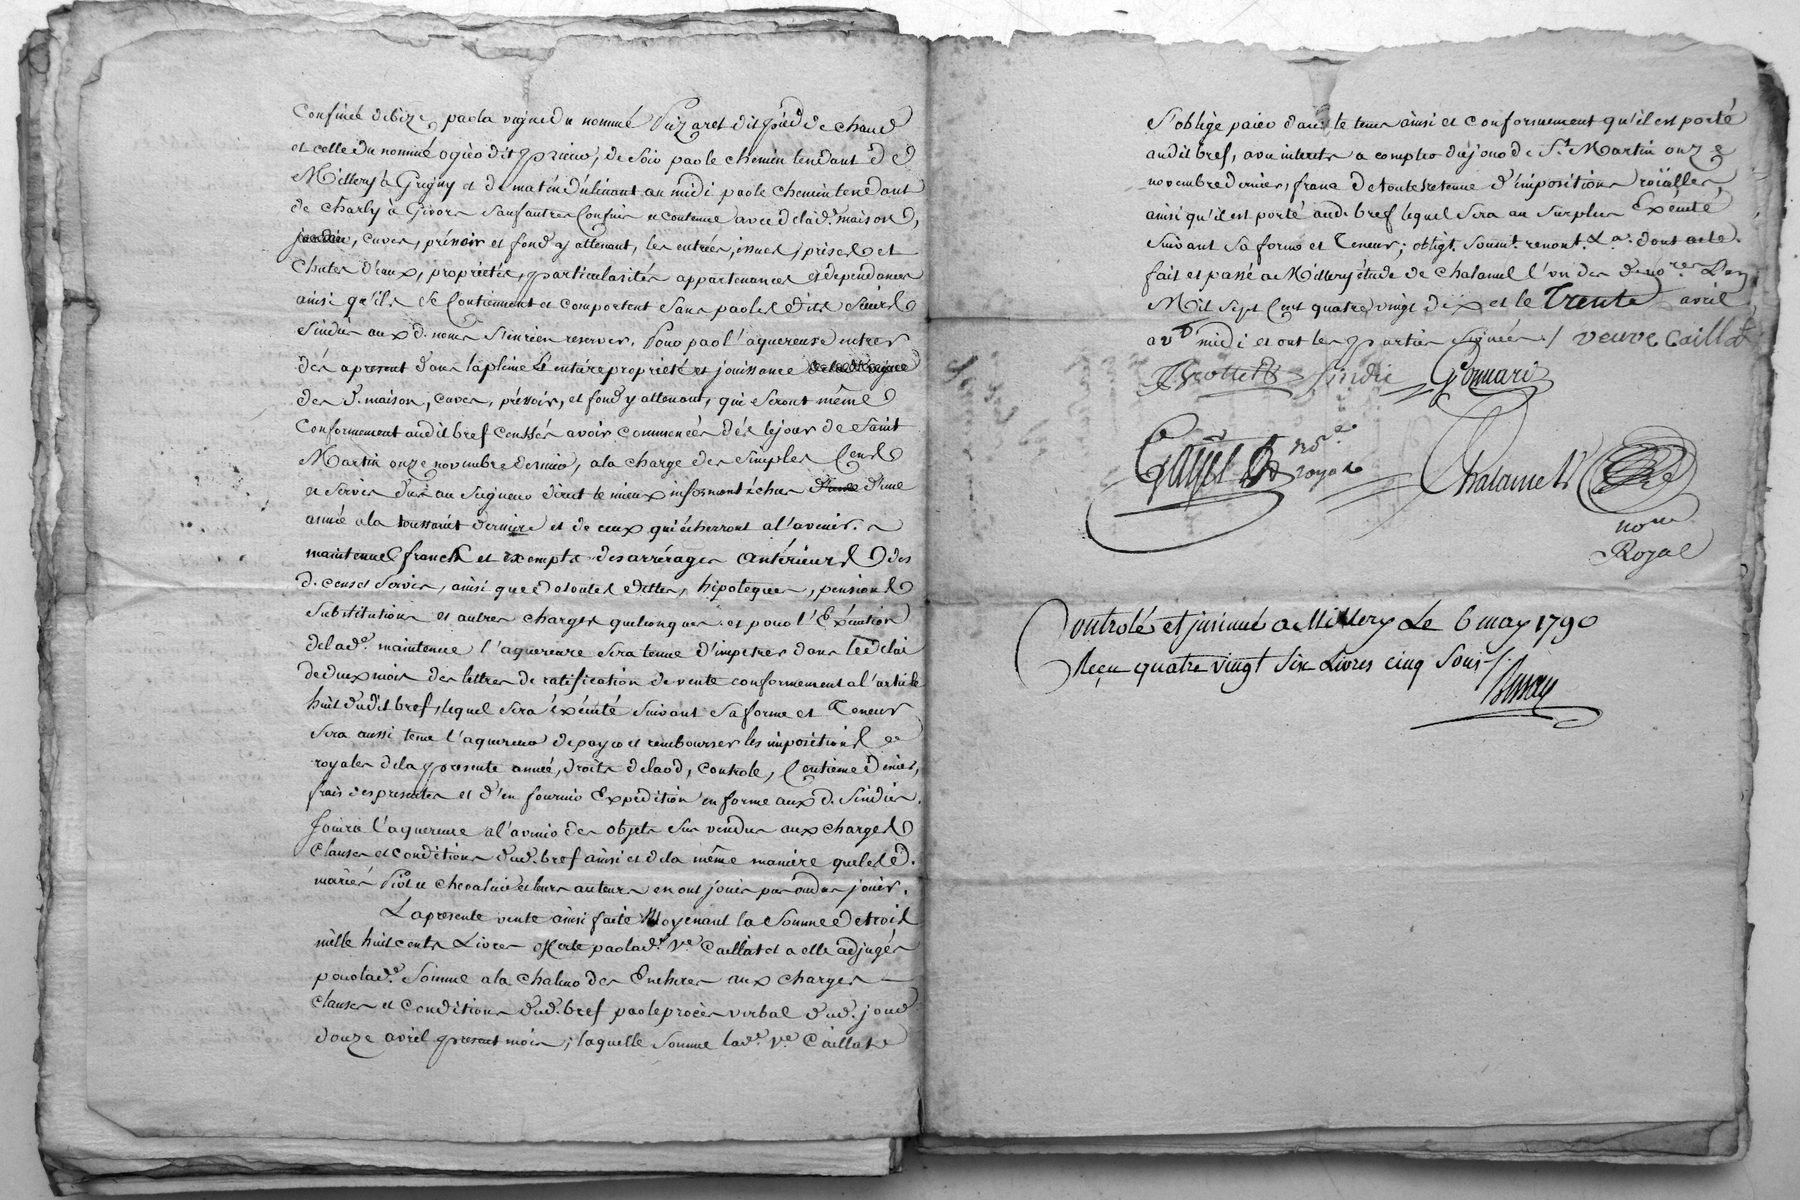 Confinée de bize par la vigne du nommé Puzaret dit pied de chaud
et celle du nommé ogier dit prieur, de soir par le chemin tendant de
Millery à Grigny et de matin déclinant au midi par le chemin tendant
de Charly à Givors sauf autres Confins et contenue avec de lad.e maison,
jardin, cuves, préssoir et fond y attenant, les entrées, issues, prises et
chutes d'eaux, proprietés, particularités appartenances et dependances
ainsi qu'ils se Contiennent et comportent sans par lesdits sieurs
sindics auxd. noms s'en rien reserver. Pour par l'aquereuse entrer
dés apresent dans la pleine et entiere proprieté et jouissance de lad. vigne
des d. maison, cuves, préssoir, et fond y attenant, qui seront même
Conformement audit bref censsés avoir commencés dés le jour de saint
Martin onze novembre dernier, a la charge des simples Cens
et servis dus au seigneur direct le mieux informant échus d'une
année a la toussaint derniere et de ceux qui écherront a l'avenir.
maintenus francs et exempts des arrérages antérieurs des
d. cens et servis, ainsi que de toutes dettes, hipoteques, pensions
substitutions et autres charges quelconques et pour l'Exécution
de lad.e maintenue l'aquereure sera tenue d'impetrer dans le délai
de deux mois des lettres de ratification de vente conformement a l'article
huit dudit bref, lequel sera éxécuté suivant sa forme et Teneur
sera aussi tenue l'aquereure de payer et rembourser les impositions
royales de la presente année, droits de laod, controle, Centieme denier,
frais des presentes et d'en fournir Expedition en forme auxd. sindics.
Jouira l'aquereure a l'avenir des objets sus vendus aux charges
Clauses et conditions dud. bref ainsi et de la même maniere que lesd.
mariés Piot et chevalier et leurs auteurs en ont jouis pu ou du jouir.
La presente vente ainsi faite Moyenant la somme de trois
mille huit cents Livres offerte par lad.e V.e Caillat et a elle adjugée
pour lad.e somme a la chaleur des Encheres aux charges
clauses et conditions dud. bref par le procès verbal dud. jour
douze avril present mois; laquelle somme lad.e V.e Caillat
s'oblige paier dans le tems ainsi et conformement qu'il est porté
audit bref, avec interets a compter du jour de S.t Martin onze
novembre dernier, franc de toutes retenue d'impositions roïalles,
ainsi qu'il est porté aud. bref lequel sera au surplus Exécuté
suivant sa forme et Teneur; obligt. soumt. renont. L.a. dont acte.
fait et passé a Millery étude de Chalamel l'un des d. no.res L'an
Mil sept Cent quatre vingt dix et le Trente avril
av.t midi et ont les parties signées / veuve Caillat
sindic
Gayet
royal
Chalamel
no.re
Royal
Controlé et insinué a Millery Le 6 may 1790
Reçu quatre vingt six Livres cinq sous